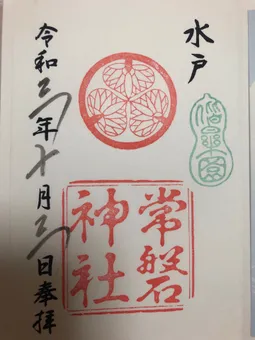 水戸
偕楽園
常磐
神社
令和二年十月三日奉拝